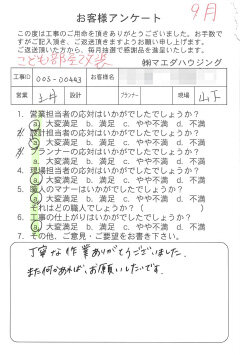 9月
お客様アンケート
この度は工事のご用命を頂きありがとうございました。お手数で
すがご記入頂き、ご返送頂きますようお願い申し上げます。
ご返送頂いた方から、毎月抽選で感謝品を進呈いたします。
こども部屋改装
㈱マエダハウジング
工事ID 005-00443 お客様名
営業 土井 設計 プランナー 現場 山下
1. 営業担当者の応対はいかがでしたでしょうか？
a. 大変満足 b. 満足 c. やや不満 d. 不満
2. 設計担当者の応対はいかがでしたでしょうか？
a. 大変満足 b. 満足 c. やや不満 d. 不満
3. プランナーの応対はいかがでしたでしょうか？
a. 大変満足 b. 満足 c. やや不満 d. 不満
4. 現場担当者の応対はいかがでしたでしょうか？
a. 大変満足 b. 満足 c. やや不満 d. 不満
5. 職人のマナーはいかがでしたでしょうか？
a. 大変満足 b. 満足 c. やや不満 d. 不満
それはどの職人でしょうか？（ ）
6. 工事の仕上がりはいかがでしたでしょうか？
a. 大変満足 b. 満足 c. やや不満 d. 不満
7. その他、ご意見・ご要望をお書き下さい。
丁寧な作業ありがとうございました。
また何かあれば、お願いしたいです。